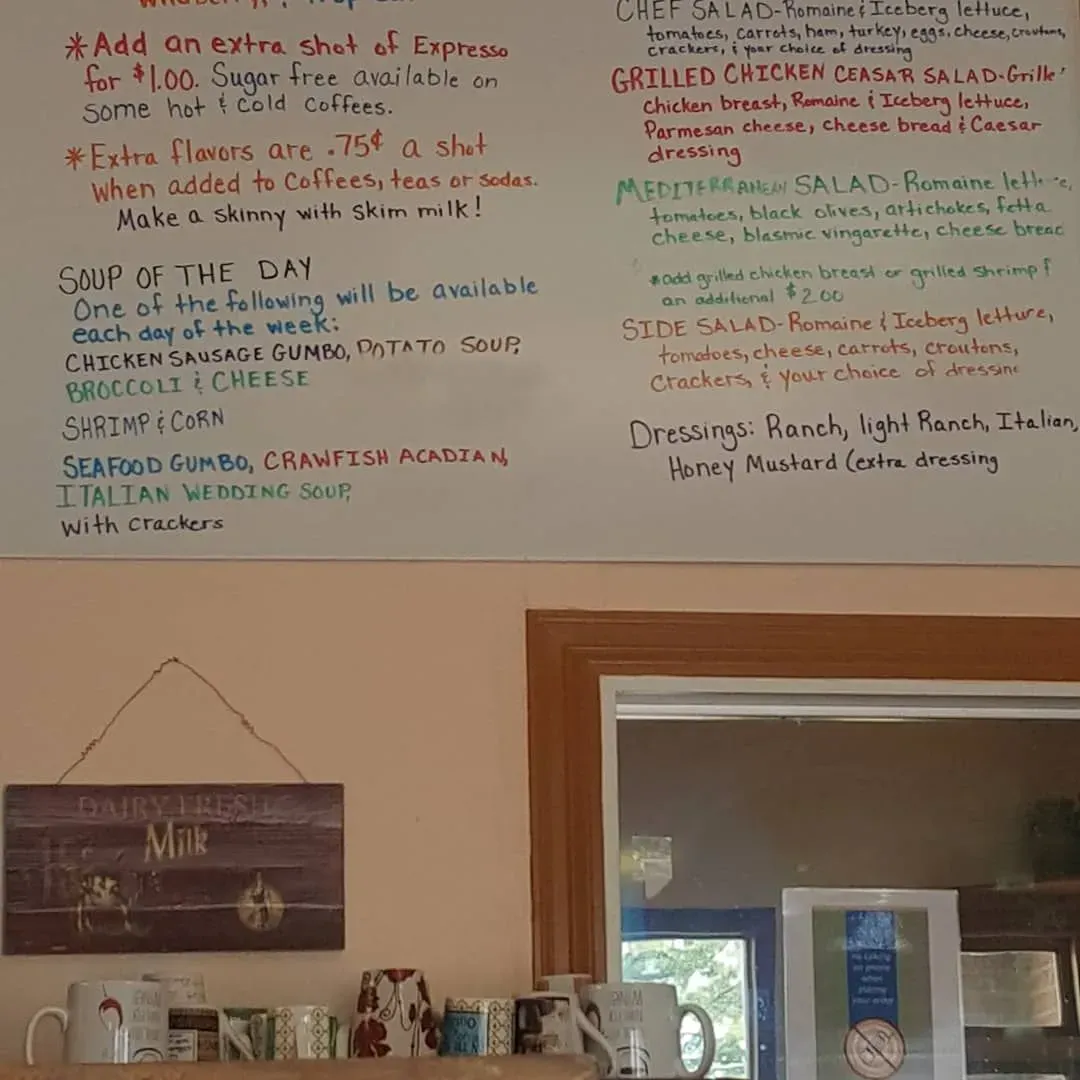 *Add an extra shot of Expresso
for $1.00. Sugar free available on
some hot & cold coffees.
*Extra flavors are .75¢ a shot
when added to Coffees, teas or sodas.
Make a skinny with skim milk!
SOUP OF THE DAY
One of the following will be available
each day of the week:
CHICKEN SAUSAGE GUMBO, POTATO SOUP,
BROCCOLI & CHEESE
SHRIMP & CORN
SEAFOOD GUMBO, CRAWFISH ACADIAN,
ITALIAN WEDDING SOUP,
with crackers
CHEF SALAD-Romaine & Iceberg lettuce,
tomatoes, carrots, ham, turkey, eggs, cheese, croutons,
crackers, & your choice of dressing
GRILLED CHICKEN CEASAR SALAD-Grille
chicken breast, Romaine & Iceberg lettuce,
Parmesan cheese, cheese bread & Caesar
dressing
MEDITERRANEAN SALAD-Romaine
tomatoes, black olives, artichokes, fetta
cheese, blasmic vingarette, cheese bread
*add grilled chicken breast or grilled shrimp f
an additional $2.00
SIDE SALAD-Romaine & Iceberg letture,
tomatoes, cheese, carrots, croutons,
Crackers, & your choice of dressing
Dressings: Ranch, light Ranch, Italian,
Honey Mustard (extra dressing
DAIRY FRESH
Milk